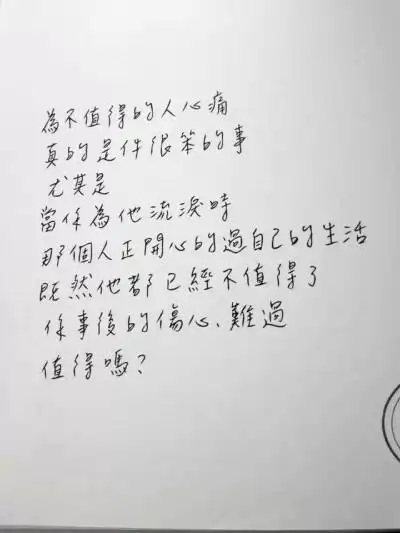 為不值得的人心痛
真的是件很笨的事
尤其是
當你為他流淚時
那個人正開心的過自己的生活
既然他都已經不值得了
你事後的傷心、難過
值得嗎?